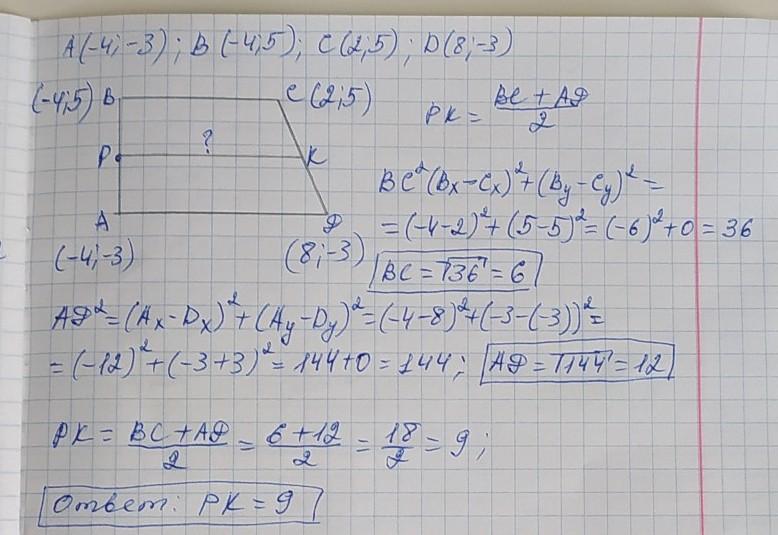 A(-4;-3); B(-4;5); C(2;5); D(8;-3)
(-4;5) B
C(2;5)
PK = (BC + AD)/2
P
?
K
A
D
(-4;-3)
(8;-3)
BC²(Bx-Cx)²+(By-Cy)² =
= (-4-2)²+(5-5)² = (-6)²+0 = 36
BC = √36 = 6
AD² = (Ax-Dx)²+(Ay-Dy)² = (-4-8)²+(-3-(-3))² =
= (-12)²+(-3+3)² = 144+0 = 144; AD = √144 = 12
PK = (BC+AD)/2 = (6+12)/2 = 18/2 = 9;
Ответ: PK = 9